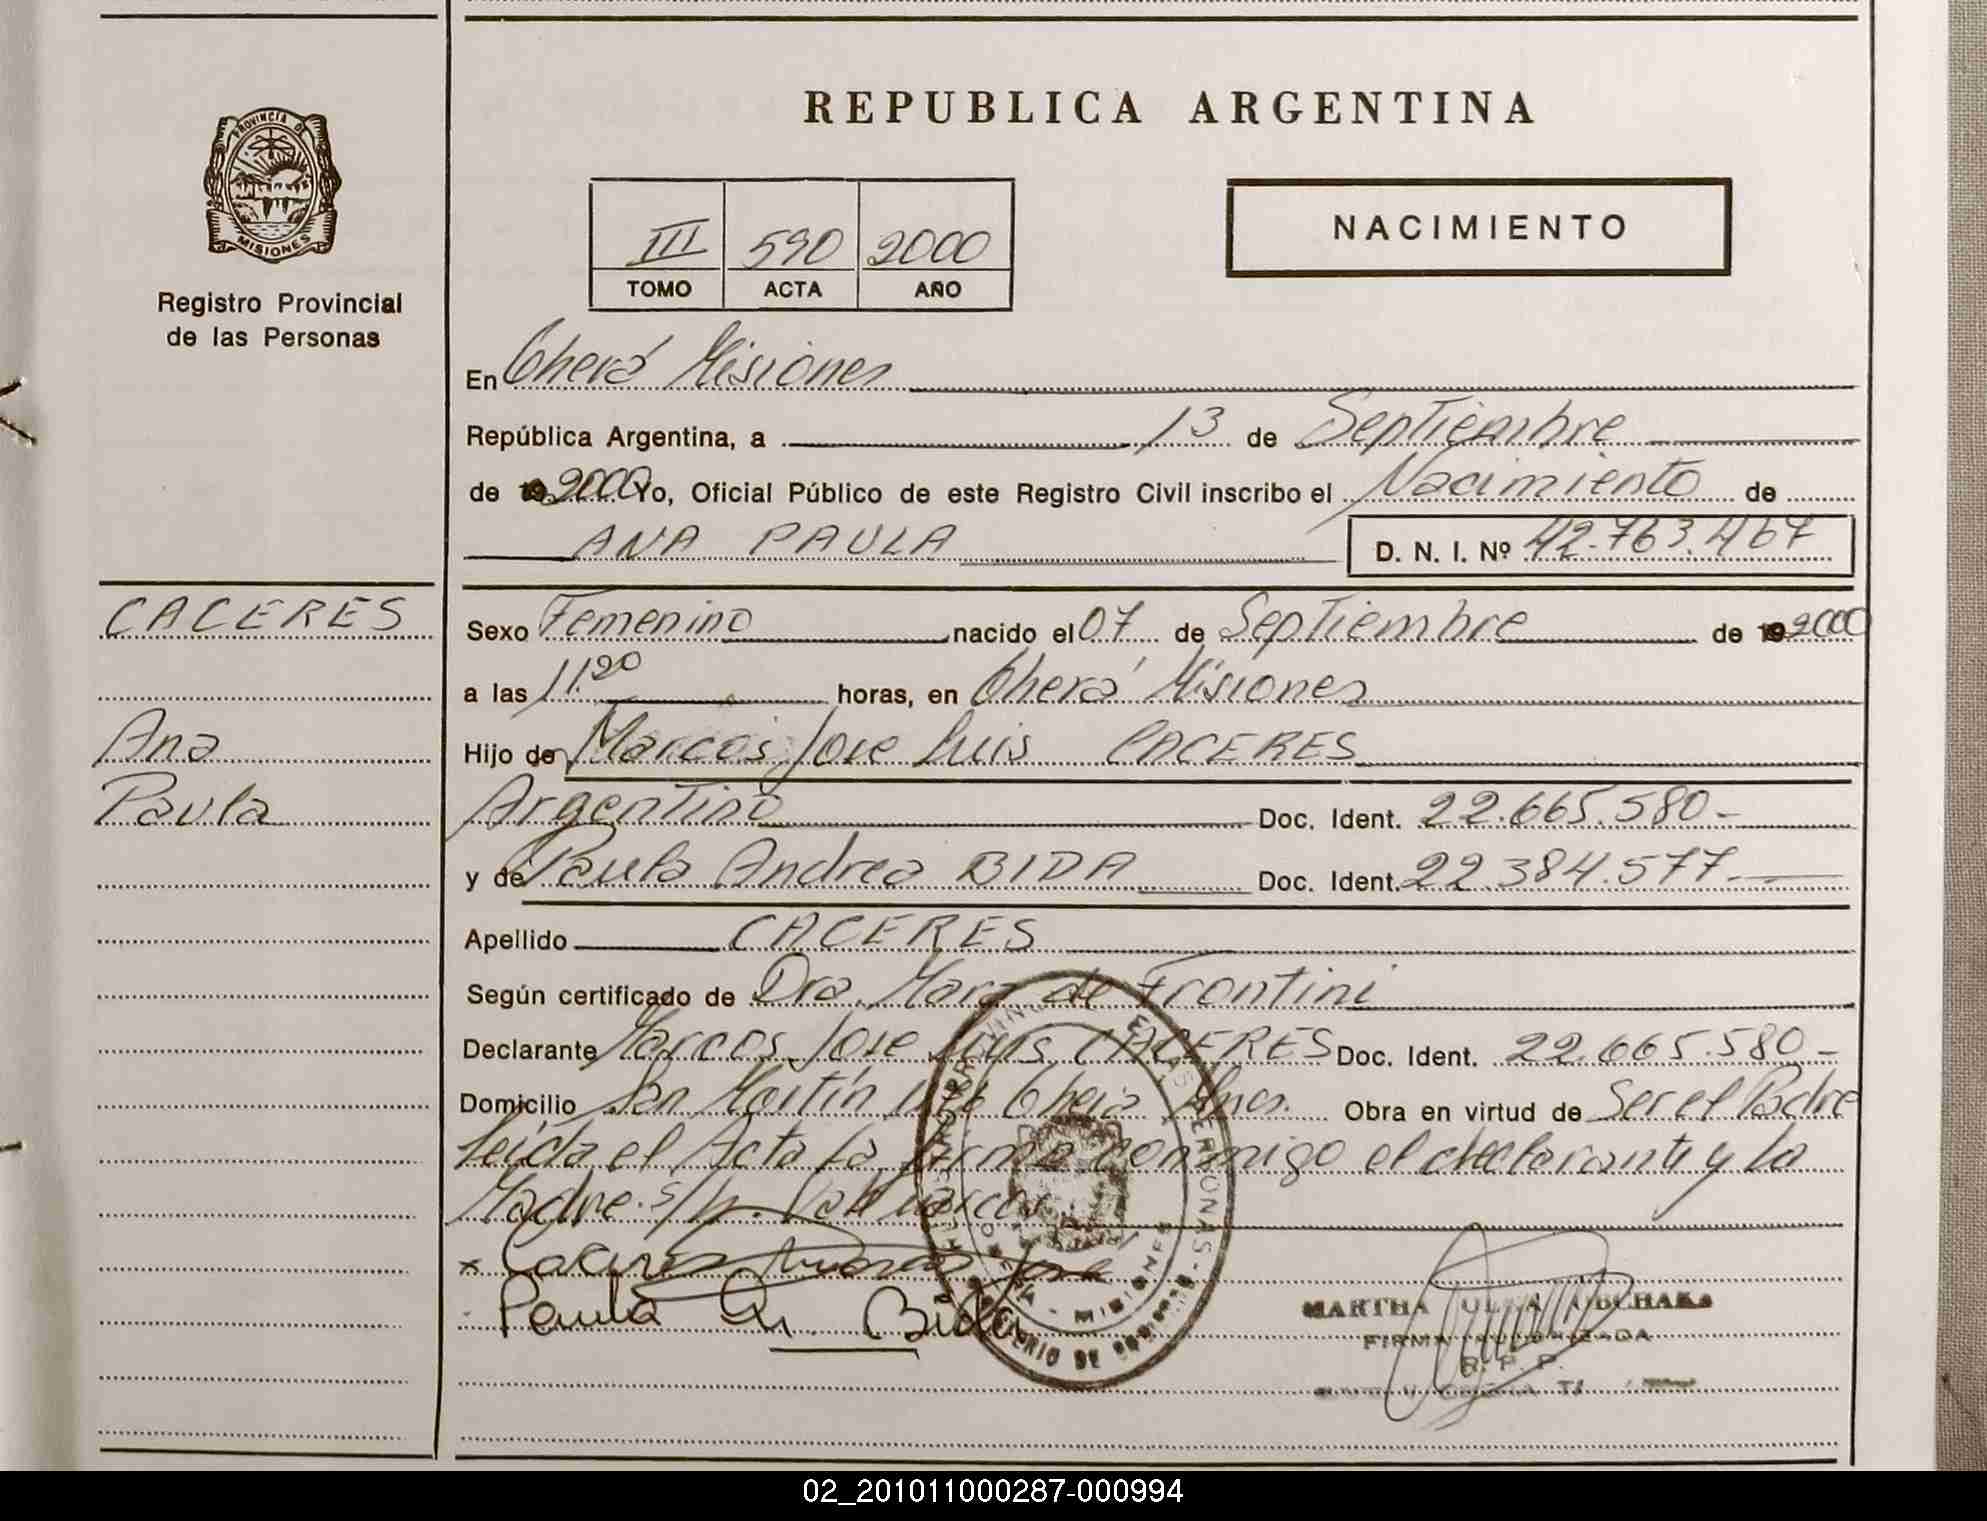 REPUBLICA ARGENTINA
PROVINCIA DE
MISIONES
Registro Provincial
de las Personas
NACIMIENTO
III 590 2000
TOMO ACTA AÑO
En Oberá Misiones
República Argentina, a 13 de Septiembre
de 19 2000 Yo, Oficial Público de este Registro Civil inscribo el Nacimiento de
ANA PAULA D. N. I. Nº 42.763.467
CACERES
Ana
Paula
Sexo Femenino nacido el 07 de Septiembre de 19 2000
a las 11.20 horas, en Oberá Misiones
Hijo de Marcos Jose Luis CACERES
Argentino Doc. Ident. 22.665.580-
y de Paula Andrea BIDA Doc. Ident. 22.384.577-
Apellido CACERES
Según certificado de Dra. Mara de Frontini
Declarante Marcos Jose Luis CACERES Doc. Ident. 22.665.580-
Domicilio San Martín Oberá Mnes. Obra en virtud de Ser el Padre
Leída el Acta la firma conmigo el declarante y la
Madre. s/b. Vale Marcos
x Caceres Marcos Jose
Paula A. Bida
MARTHA
FIRMA AUTORIZADA
R. P. P.
02_201011000287-000994